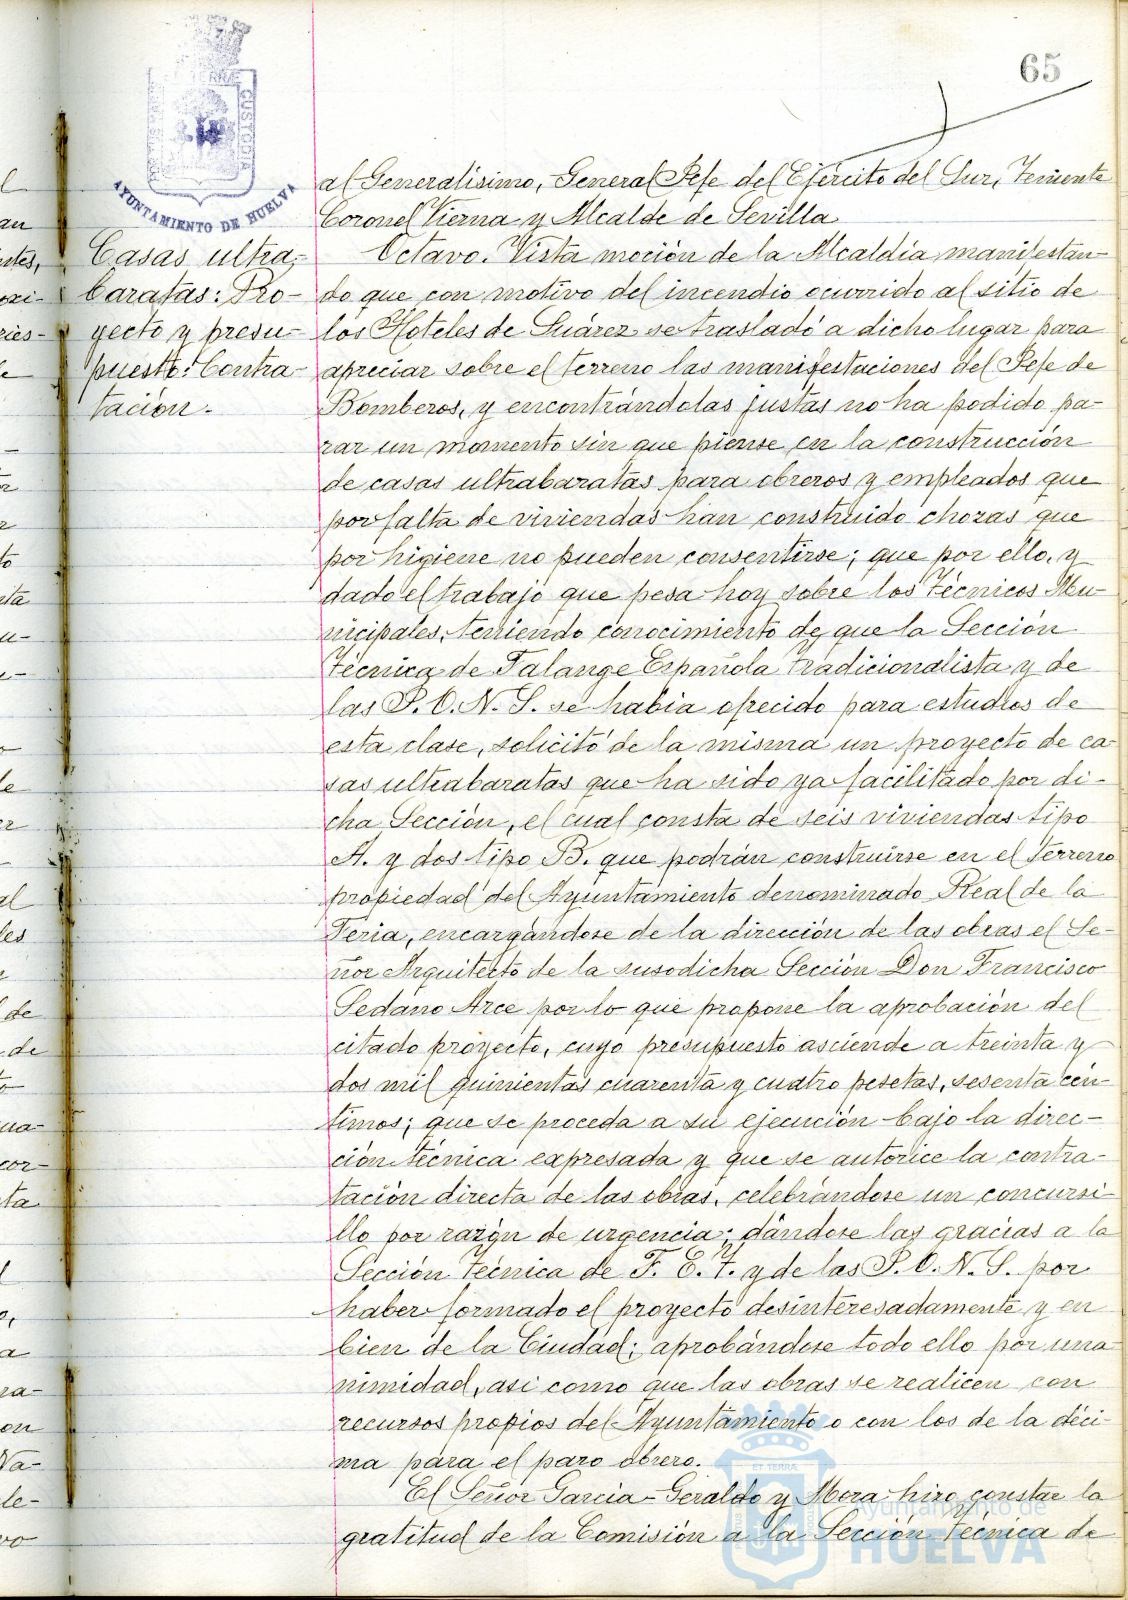 65
AYUNTAMIENTO DE HUELVA
Casas ultra-
baratas: Pro-
yecto y presu-
puesto: Contra-
tación.-
al Generalísimo, General Jefe del Ejército del Sur, Teniente
Coronel Vierna y Alcalde de Sevilla
Octavo. Vista moción de la Alcaldía manifestan-
do que con motivo del incendio ocurrido al sitio de
los Hoteles de Suárez se trasladó a dicho lugar para
apreciar sobre el terreno las manifestaciones del Jefe de
Bomberos, y encontrándolas justas no ha podido pa-
rar un momento sin que piense en la construcción
de casas ultrabaratas para obreros y empleados que
por falta de viviendas han construido chozas que
por higiene no pueden consentirse; que por ello, y
dado el trabajo que pesa hoy sobre los Técnicos Mu-
nicipales, teniendo conocimiento de que la Sección
Técnica de Falange Española Tradicionalista y de
las J.O.N.S. se había ofrecido para estudios de
esta clase, solicitó de la misma un proyecto de ca-
sas ultrabaratas que ha sido ya facilitado por di-
cha Sección, el cual consta de seis viviendas tipo
A. y dos tipo B. que podrán construirse en el terreno
propiedad del Ayuntamiento denominado Real de la
Feria, encargándose de la dirección de las obras el Se-
ñor Arquitecto de la susodicha Sección Don Francisco
Sedano Arce por lo que propone la aprobación del
citado proyecto, cuyo presupuesto asciende a treinta y
dos mil quinientas cuarenta y cuatro pesetas, sesenta cén-
timos; que se proceda a su ejecución bajo la direc-
ción técnica expresada y que se autorice la contra-
tación directa de las obras, celebrándose un concursi-
llo por razón de urgencia; dándose las gracias a la
Sección Técnica de F. E. T. y de las J.O.N.S. por
haber formado el proyecto desinteresadamente y en
bien de la Ciudad; aprobándose todo ello por una-
nimidad, asi como que las obras se realicen con
recursos propios del Ayuntamiento o con los de la déci-
ma para el paro obrero.
El Señor Garcia-Geraldo y Mora hizo constar la
gratitud de la Comisión a la Sección Técnica de
Ayuntamiento de
HUELVA